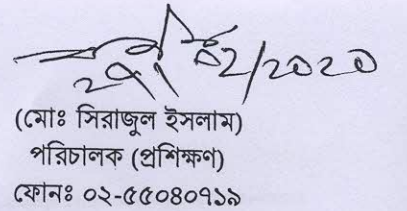 ২৭/০২/২০২০
(মোঃ সিরাজুল ইসলাম)
পরিচালক (প্রশিক্ষণ)
ফোনঃ ০২-৫৫০৪০৭১৯